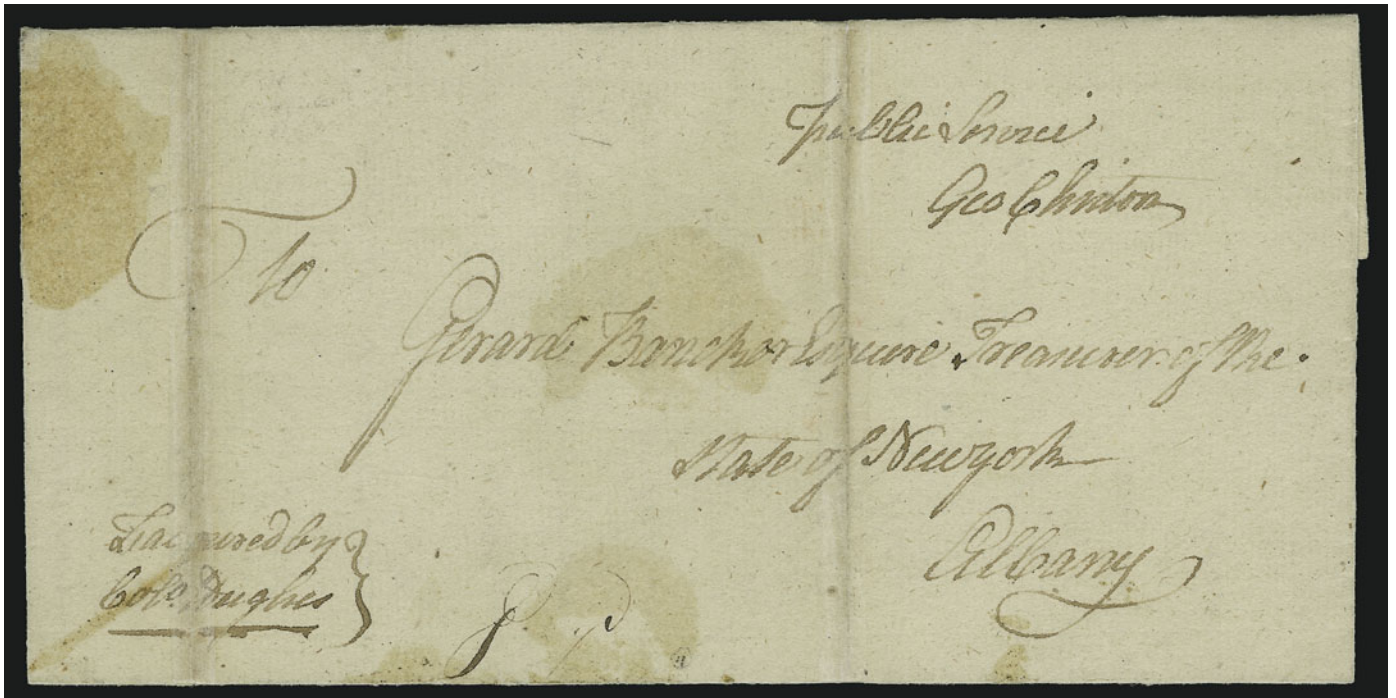 Public Service
Geo Clinton
To
Gerard Bancker Esquire Treasurer of the
State of Newyork
Albany
by
Colo. Hughes